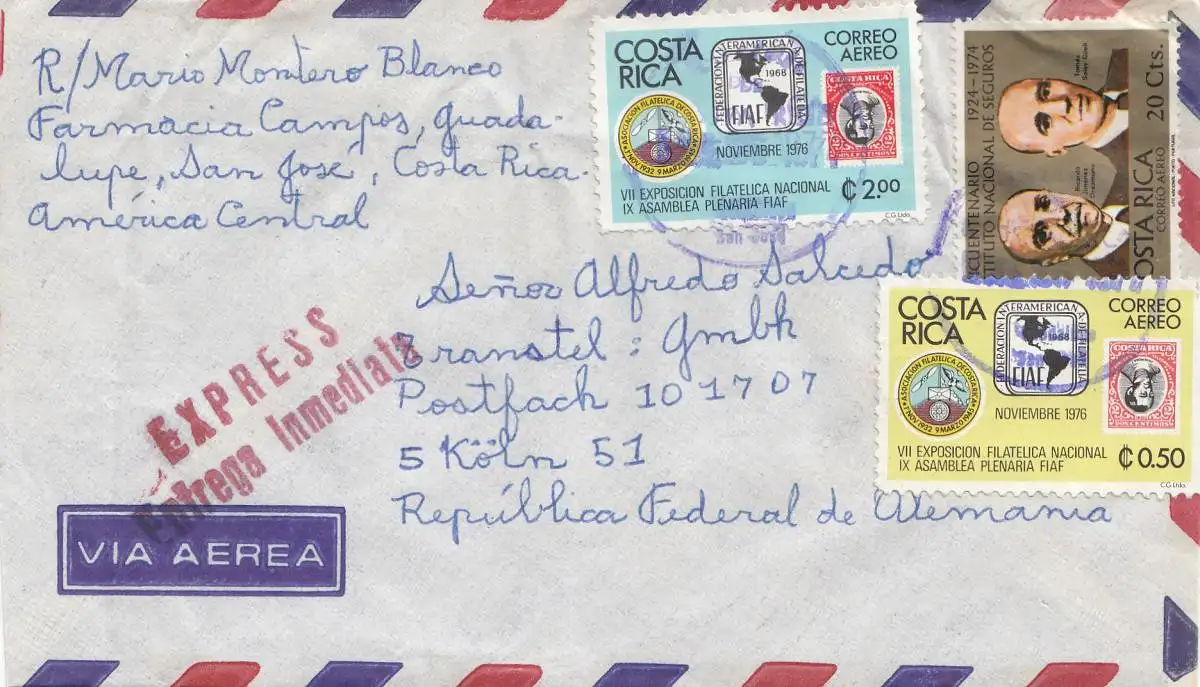 R/Mario Montero Blanco
Farmacia Campos, Guada-
lupe, San José, Costa Rica.
América Central
COSTA RICA
CORREO AEREO
FEDERACION INTERAMERICANA DE FILATELIA
1968
FIAF
ASOCIACION FILATELICA DE COSTA RICA
1 NOV 1932 9 MARZO 1965
COSTA RICA
DOS CENTIMOS
NOVIEMBRE 1976
VII EXPOSICION FILATELICA NACIONAL
IX ASAMBLEA PLENARIA FIAF
₡2.00
C.G. Ltda.
San José
CINCUENTENARIO 1924-1974
INSTITUTO NACIONAL DE SEGUROS
Tomás
Ricardo Jiménez
COSTA RICA
CORREO AEREO
20 Cts.
Señor Alfredo Salcedo
Transtel: Gmbh
Postfach 10 17 07
5 Köln 51
República Federal de Alemania
COSTA RICA
CORREO AEREO
FEDERACION INTERAMERICANA DE FILATELIA
1968
FIAF
ASOCIACION FILATELICA DE COSTA RICA
1 NOV 1932 9 MARZO 1965
COSTA RICA
DOS CENTIMOS
NOVIEMBRE 1976
VII EXPOSICION FILATELICA NACIONAL
IX ASAMBLEA PLENARIA FIAF
₡0.50
C.G. Ltda.
EXPRESS
Entrega Inmediata
VIA AEREA